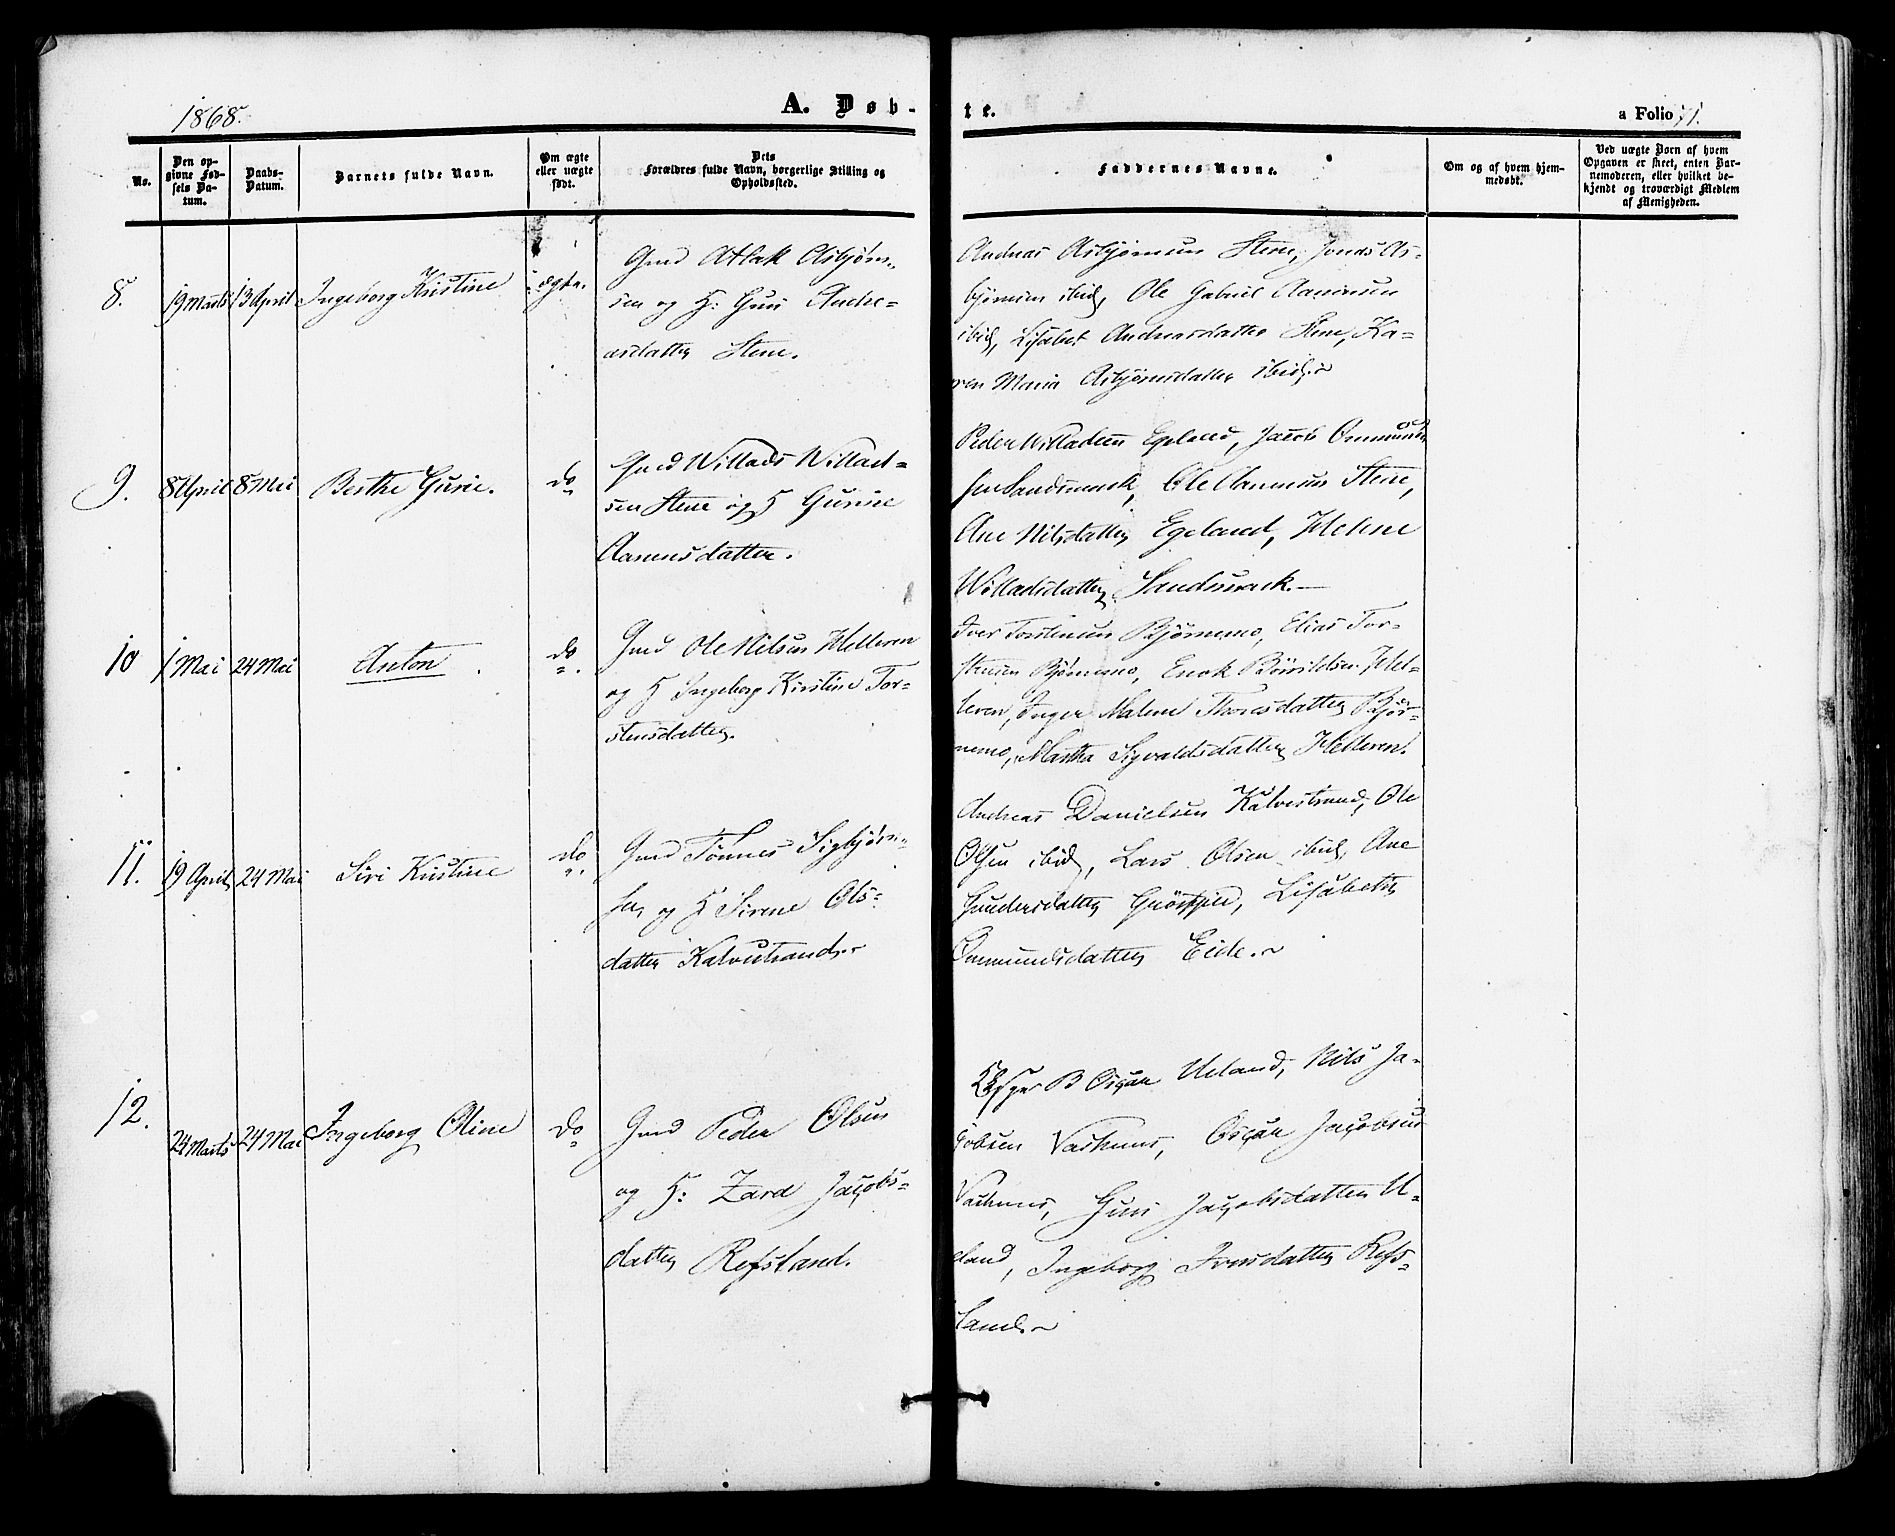 1868.
A. Døb-
te.
a Folio 71.
No.
Den op-
givne Fød-
sels Da-
tum.
Daabs-
Datum.
Barnets fulde Navn.
Om ægte
eller uægte
født.
Dets
Forældres fulde Navn, borgerlige Stilling og
Opholdssted.
Faddernes Navne.
Om og af hvem hjem-
medøbt.
Ved uægte Born af hvem
Opgaven er skeet, enten Bar-
nemoderen, eller hvilket be-
kjendt og troværdigt Medlem
af Menigheden.
8.
19 Marts
13 April
Ingeborg Kristine
ægte.
Gmd Atlak Asbjørn-
sen og H: Guri Andre-
asdatter Stene.
Andreas Asbjørnsen Stene, Jonas As-
bjørnsen ibid, Ole Gabriel Aanensen
ibid, Lisabet Andreasdatter Stene, Ka-
ren Maria Asbjørnsdatter ibid.
9.
8 April
8 Mai
Berthe Gurie.
do
Gmd Willads Willad-
sen Stene og H Gurine
Aanensdatter.
Peder Willadsen Egeland, Jacob Ommund-
sen Sandsmark, Ole Aanensen Stene,
Ane Nilsdatter Egeland, Helene
Willadsdatter Sandsmark.—
10
1 Mai
24 Mai
Anton
do
Gmd Ole Nilsen Helleren
og H Ingeborg Kirstine Tor-
stensdatter.
Iver Torstensen Bjørnemo, Elias Tor-
stensen Bjørnemo, Enok Bårildsen Hel-
leren, Inger Malene Thoresdatter Bjør-
nemo, Martha Sigvaldsdatter Helleren.
11.
19 April
24 Mai
Siri Kristine
do
Gmd Tønnes Sigbjørn-
sen og H Sirene Ols-
datter Kalvestrand.
Andreas Danielsen Kalvestrand, Ole
Olsen ibid, Lars Olsen ibid, Ane
Gundersdatter, Lisabeth
Ommundsdatter Eide.
12.
24 Marts
24 Mai
Ingeborg Oline
do
Gmd Peder Olsen
og H: Zard Jacobs-
datter Refsland.
B Osear Ueland, Nils Ja-
cobsen Vashuus, Osear Jacobsen
Vashuus, Guri Jacobsdatter U-
eland, Ingeborg Iversdatter Refs-
land.